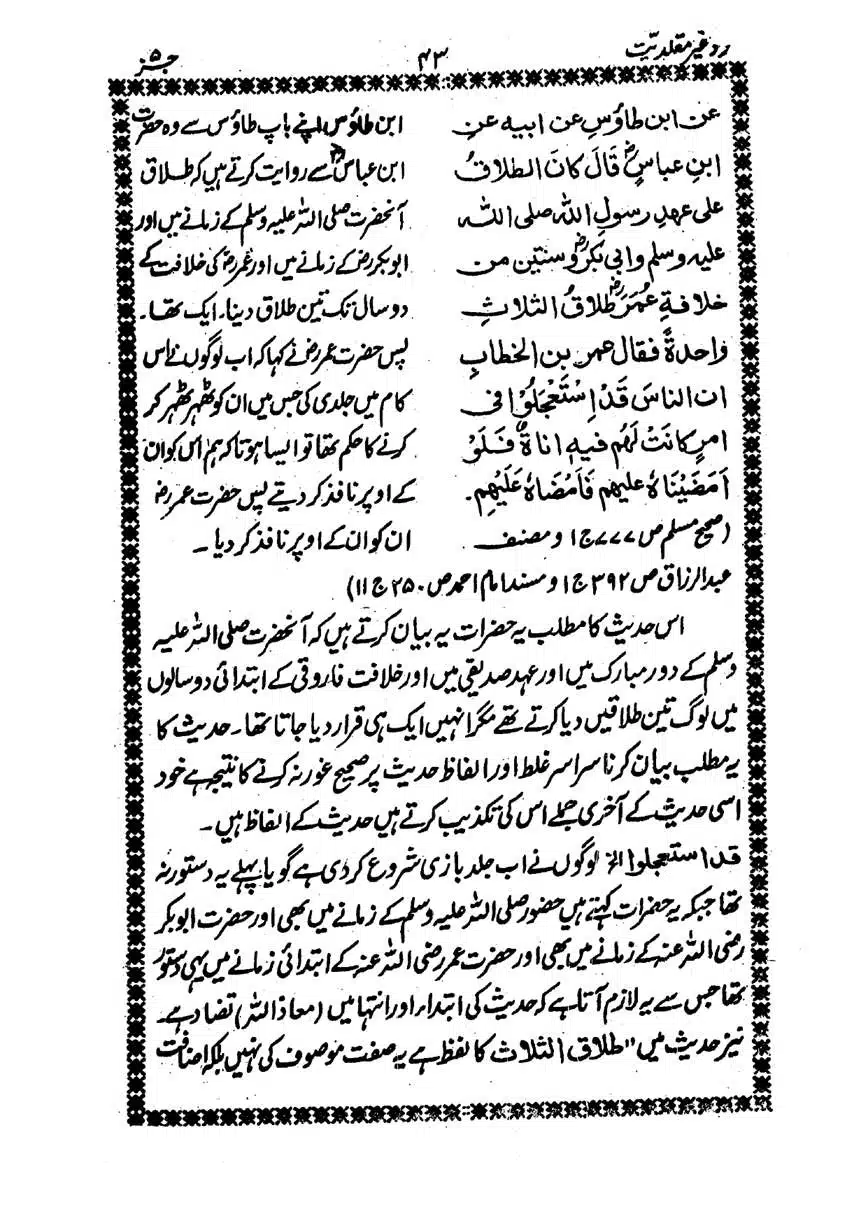 رد غیر مقلدیت
۴۳
جز ۵
عن ابن طاؤسِ عن ابیہ عنِ
ابنِ عباسٍؓ قَالَ کانَ الطلاقُ
علی عہدِ رسولِ اللہ صلی اللہ
علیہ وسلم وابی بکرؓ وسنتین من
خلافۃِ عُمَرَؓ طلاقُ الثلاثِ
واحدۃً فقال عمر بن الخطابِ
ان الناسَ قَدْ اِسْتَعْجَلُوْا فی
امرٍ کانَتْ لَھُم فیہِ اناۃٌ فَلَوْ
اَمضَیْنَاہُ علیھم فَاَمْضَاہُ عَلَیْھِم۔
(صحیح مسلم ص ۷۷۷ ج ۱ و مصنف
عبدالرزاق ص ۳۹۲ ج ۱ و مسند امام احمد ص ۲۵۰ ج ۱۱)
ابن طاؤس اپنے باپ طاؤس سے وہ حضرت
ابن عباسؓ سے روایت کرتے ہیں کہ طلاق
آنحضرت صلی اللہ علیہ وسلم کے زمانے میں اور
ابوبکرؓ کے زمانے میں اور عمرؓ کی خلافت کے
دو سال تک تین طلاق دینا۔ ایک تھا۔
پس حضرت عمرؓ نے کہا کہ اب لوگوں نے اس
کام میں جلدی کی جس میں ان کو ٹھہر ٹھہر کر
کرنے کا حکم تھا تو ایسا ہوتا کہ ہم اس کو ان
کے اوپر نافذ کر دیتے پس حضرت عمرؓ
ان کو ان کے اوپر نافذ کر دیا۔
اس حدیث کا مطلب یہ حضرات یہ بیان کرتے ہیں کہ آنحضرت صلی اللہ علیہ
وسلم کے دور مبارک میں اور عہد صدیقی میں اور خلافت فاروقی کے ابتدائی دو سالوں
میں لوگ تین طلاقیں دیا کرتے تھے مگر انہیں ایک ہی قرار دیا جاتا تھا۔ حدیث کا
یہ مطلب بیان کرنا سراسر غلط اور الفاظ حدیث پر صحیح غور نہ کرنے کا نتیجہ ہے خود
اسی حدیث کے آخری جملے اس کی تکذیب کرتے ہیں حدیث کے الفاظ ہیں۔
قد استعجلوا الخ لوگوں نے اب جلد بازی شروع کر دی ہے گویا پہلے یہ دستور نہ
تھا جبکہ یہ حضرات کہتے ہیں حضور صلی اللہ علیہ وسلم کے زمانے میں بھی اور حضرت ابوبکر
رضی اللہ عنہ کے زمانے میں بھی اور حضرت عمر رضی اللہ عنہ کے ابتدائی زمانے میں یہی دستور
تھا جس سے یہ لازم آتا ہے کہ حدیث کی ابتداء اور انتہا میں (معاذ اللہ) تضاد ہے۔
نیز حدیث میں "طلاق الثلاث کا لفظ ہے یہ صفت موصوف کی نہیں بلکہ اضافت